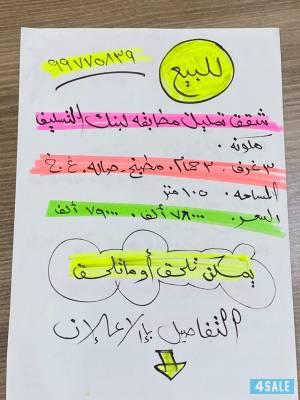 للبيع
٩٩٧٧٥٨٣٩
شقق تمليك مطابقه لبنك التسليف
مكونه.
٣ غرف. ٢ حمام. مطبخ. صاله. غ. خ
المساحه. ١٠٥ متر
السعر. ٧٨٠٠٠ ألف. ٧٩٠٠٠ ألف
يمكن تلحق أو ماتلحق
التفاصيل بالاعلان
4SALE